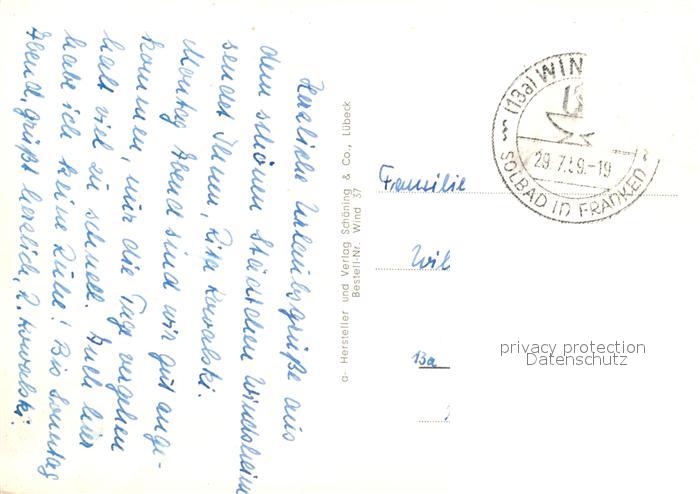 Herzliche Urlaubsgrüße aus
dem schönen Städtchen Windsheim
sendet Ihnen, Rita Kowalski.
Montag Abend sind wir gut ange-
kommen, nur die Tage vergehen
halt viel zu schnell. Auch hier
habe ich keine Ruhe! Bis Sonntag
Abend, grüßt herzlich, R. Kowalski.
a- Hersteller und Verlag Schöning & Co., Lübeck
Bestell-Nr. Wind 37
(13a) WIN
29.7.59.-19
SOLBAD IN FRANKEN
Familie
Wil
13a
privacy protection
Datenschutz